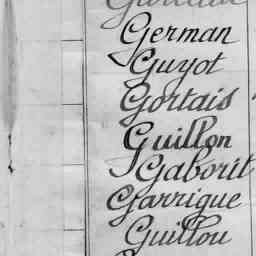 German
Guyot
Gortais
Guillon
Gaborit
Garrigue
Guillou